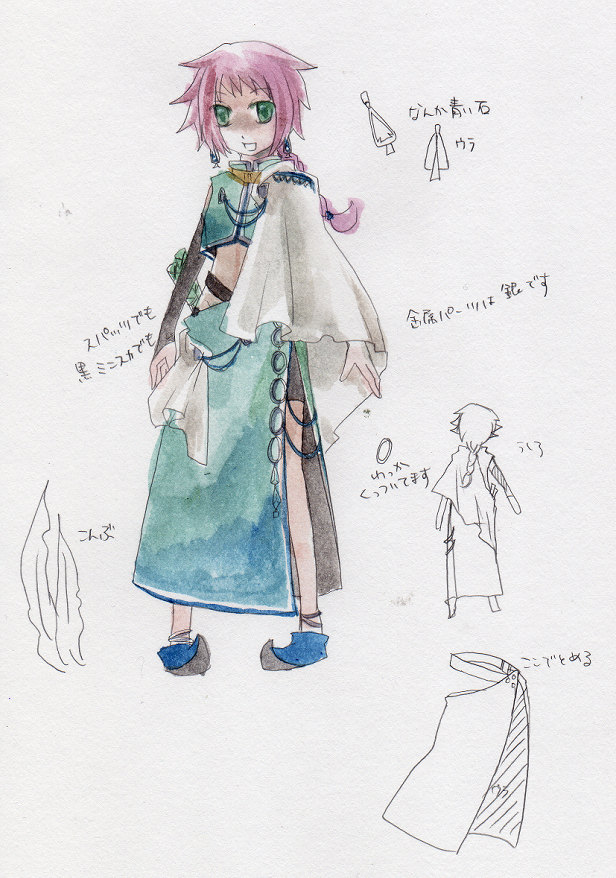 なんか青い石
ウラ
スパッツでも
黒ミニスカでも
金属パーツは銀です
うしろ
わっか
くっついてます
こんぶ
ここでとめる
ウラ